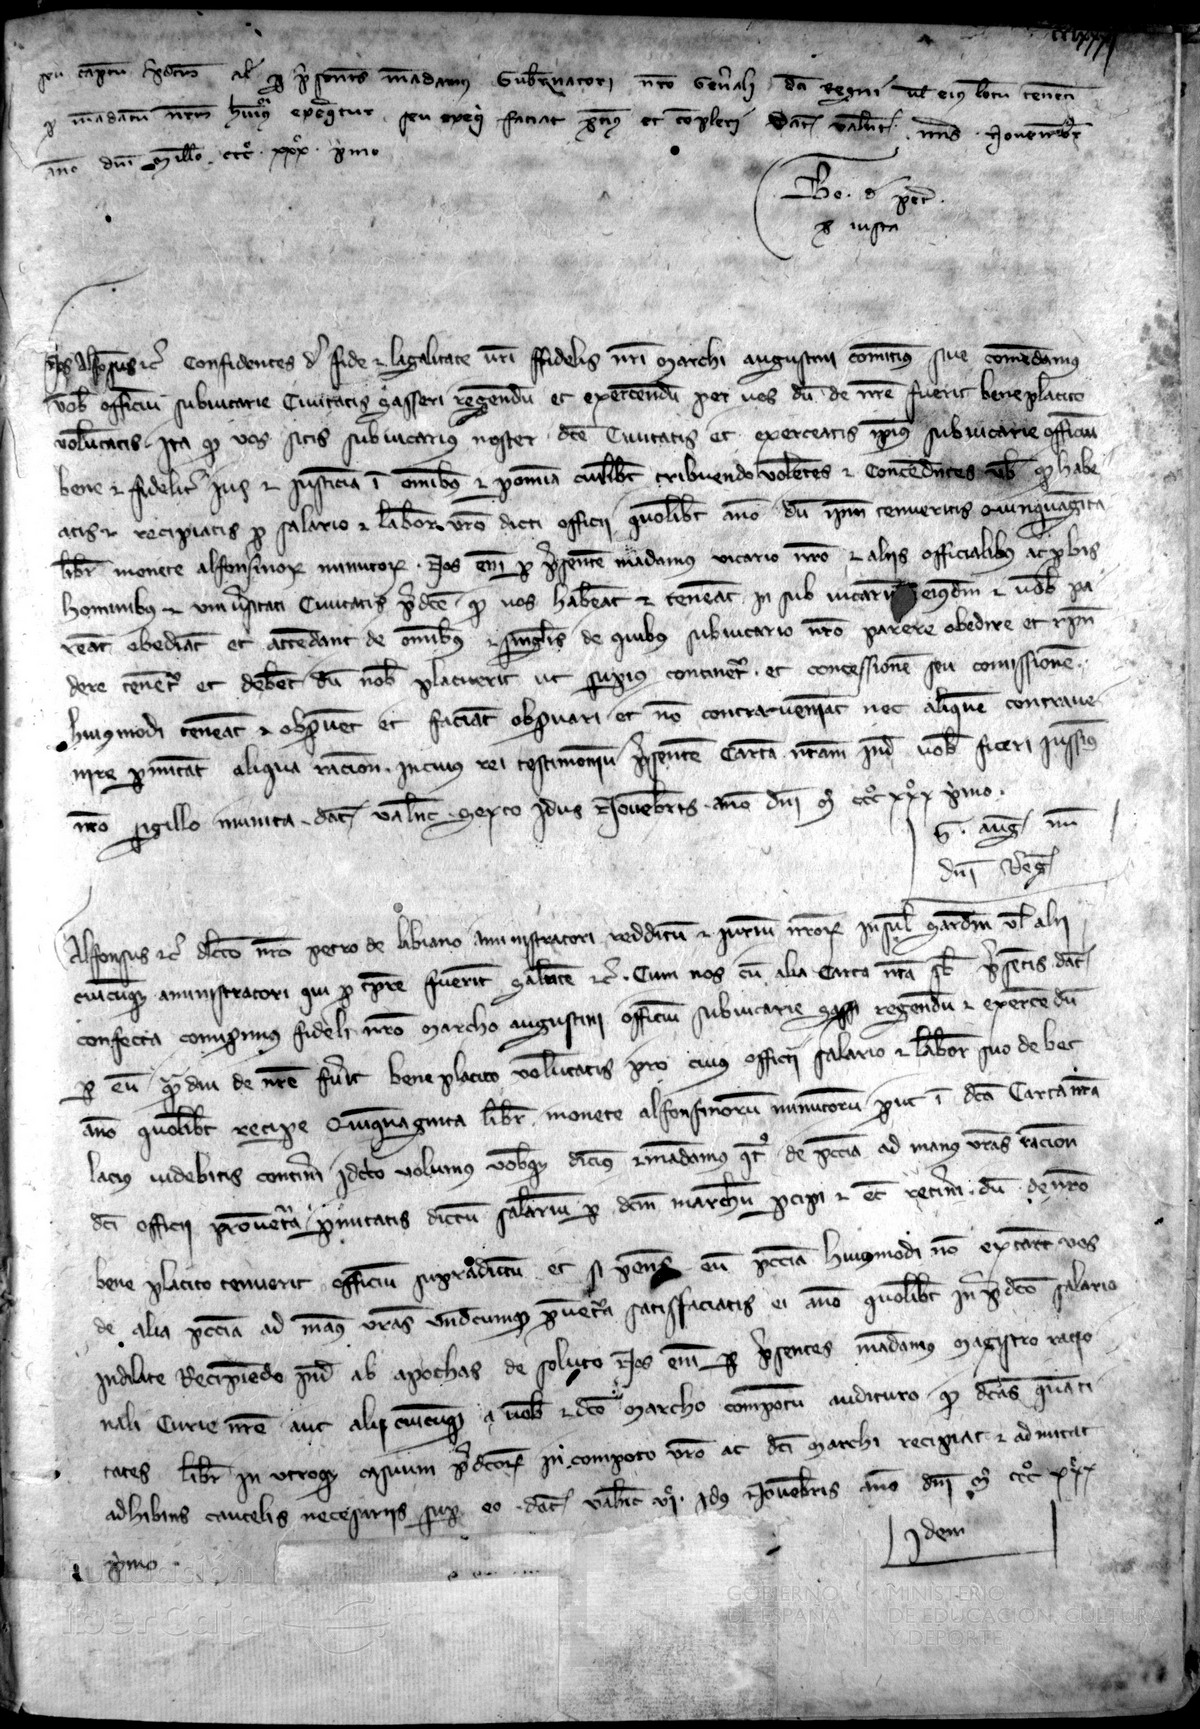 seu captum al p presentes mandamus Gubernatori nro Generali dci Regni vel eius locum tenenti
p mandatum nrm huiusmodi exequtur seu exequi faciat et compleri Dat Valenc Novembr
Ano dni Millo ccc xxx primo
Be d
ex iusta
Nos Alfonsus etc Confidentes de fide et ligalitate vri ffidelis nri Marchi Augustini comittimus sive comendamus
vob officium subvicarie Civitatis Sasseri regendum et exercendum per vos dum de nre fuerit beneplacito
voluntatis Ita qd vos sitis subvicarius noster dce Civitatis et exerceatis ipius subvicarie officium
bene et fideliter Jus et Justicia i omibus et p omia cuilibet tribuendo volentes et Concedentes vob qd habe
atis et recipiatis p salario et labore vro dicti officii quolibet ano dum ipm tenueritis Quinquaginta
libr monete alfonsinor minutor Nos eni p presente mandamus vicario nro et aliis officialibus ac pbis
hominibus et universitati Civitatis predce qd vos habeat et teneant in sub vicarium eiusdem et vob pa
reat obediat et attendant de omibus et singulis de quibus subvicario nro parere obedire et rpon
dere tenetr et debet dum nob placuerit ut supius continetr et concessione seu comissione
huiusmodi teneat et observet et faciat observari et no contraveniat nec aliquem contrave
nire pmitat aliqua racione In cuius rei testimonium presente Carta nram inde vob fieri iussimus
nro sigillo munita dat Valenc Sexto Idus Novembris ano dni M ccc xxx primo
G aug
dni Reg
Alfonsus etc dilecto nro Petro de Libiano aministratori reddituum et iurium nror Insule Sardin vel alii
cuicumque aministratori qui p tpre fuerit salute etc Cum nos cum alia Carta nra sub presentis dat
confecta comiserimus fideli nro Marcho Augustini officium subvicarie Sasseri regendum et exercedum
p eum quamdiu de nre fuerit beneplacito voluntatis pro cuius officii salario et labor suo debet
ano quolibet recipe Quinquaginta libr monete alfonsinorum minutorum put i dca Carta nra
lacius videbitis contineri Idcirco volumus vobisque dicimus et mandamus qt de pecunia ad manus vras racione
dci officii proventura pmitatis dictum salarium p dcm Marchum pcipi et ec retineri dum de nro
bene placito tenuerit officium supradictum et si penes eum peccia huiusmodi no extaret vos
de alia peccia ad manus vras undecumque preventura satisfaciatis ei ano quolibet in predco salario
indilate Recipiendo inde ab apochas de soluto Nos eni p presentes mandamus Magistro racio
nali Curie nre aut alii cuicumque a vob et dco Marcho compotum audituro qd dcas quanti
tates libr in utroque casuum predcor in compoto vro ac dci Marchi recipiat et admitat
adhibitis cautelis necesariis sup eo Dat Valenc Idus Novembris ano dni M ccc xxx
primo
Idem
Fundación
iberCaja
GOBIERNO
DE ESPAÑA
MINISTERIO
DE EDUCACIÓN, CULTURA
Y DEPORTE